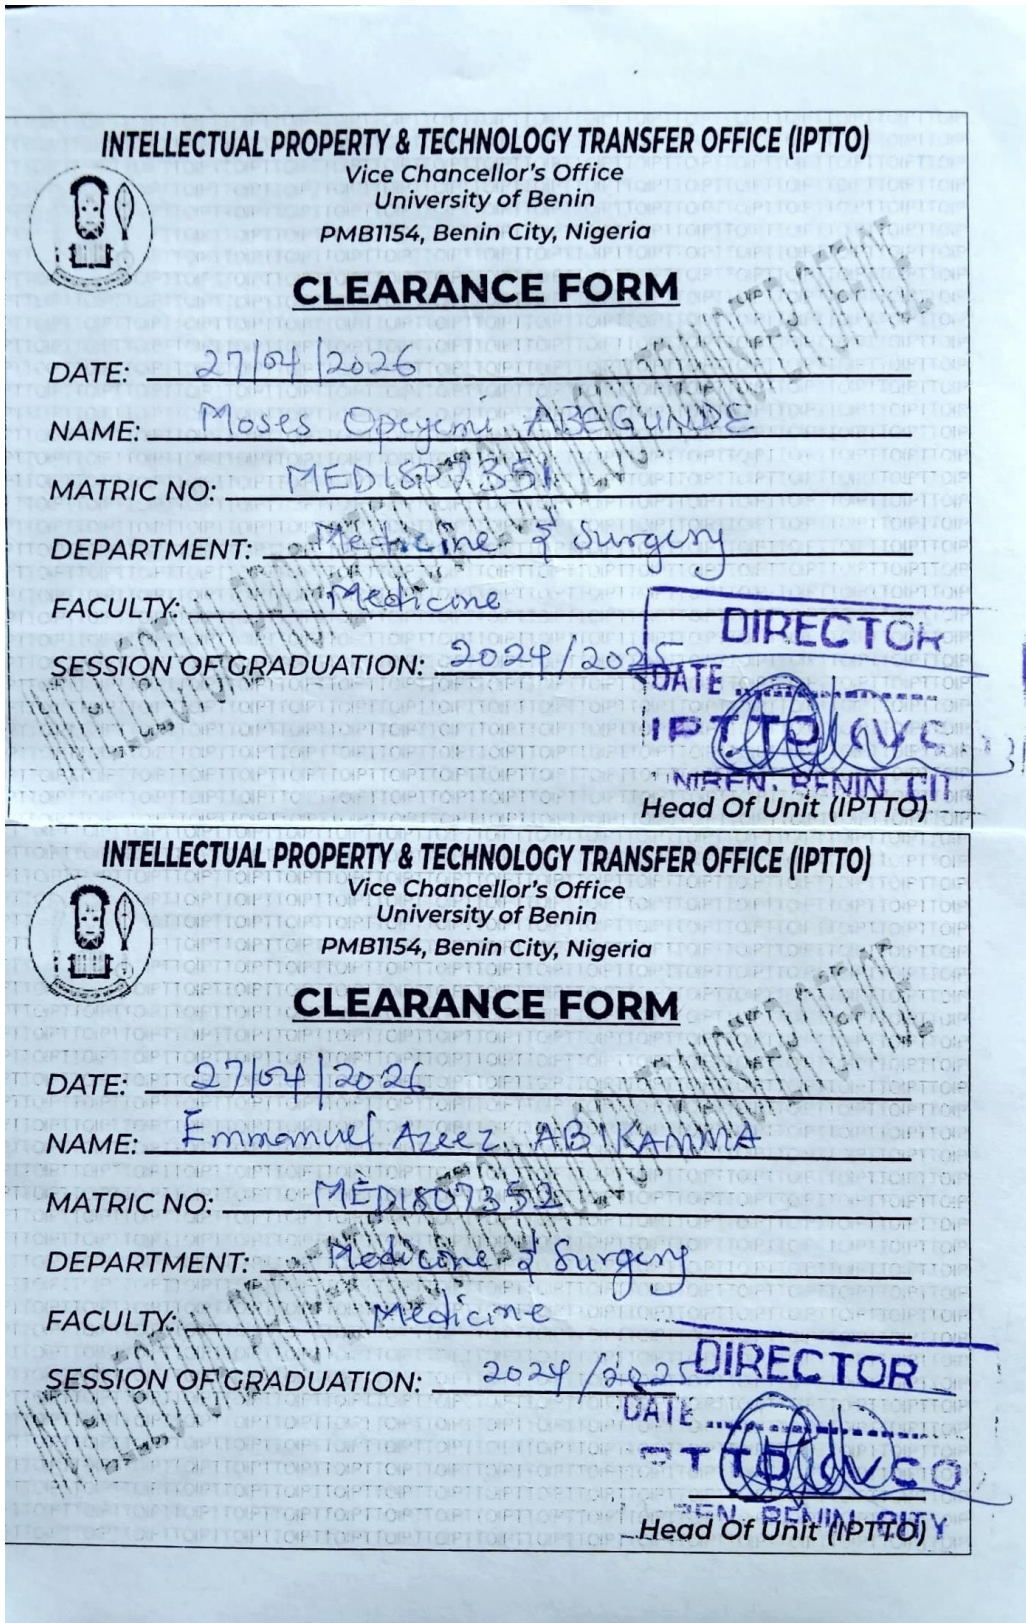 INTELLECTUAL PROPERTY & TECHNOLOGY TRANSFER OFFICE (IPTTO)
Vice Chancellor's Office
University of Benin
PMB1154, Benin City, Nigeria
CLEARANCE FORM
DATE: 27/04/2026
NAME: Moses Opeyemi ABEGUNDE
MATRIC NO: MED1807351
DEPARTMENT: Medicine & Surgery
FACULTY: Medicine
SESSION OF GRADUATION: 2024/2025
DIRECTOR
DATE
IPTTO
BENIN
Head Of Unit (IPTTO)
INTELLECTUAL PROPERTY & TECHNOLOGY TRANSFER OFFICE (IPTTO)
Vice Chancellor's Office
University of Benin
PMB1154, Benin City, Nigeria
CLEARANCE FORM
DATE: 27/04/2026
NAME: Emmanuel Azeez
MATRIC NO: MED1807352
DEPARTMENT: Medicine & Surgery
FACULTY: Medicine
SESSION OF GRADUATION: 2024/2025
DIRECTOR
DATE
BENIN CITY
Head Of Unit (IPTTO)